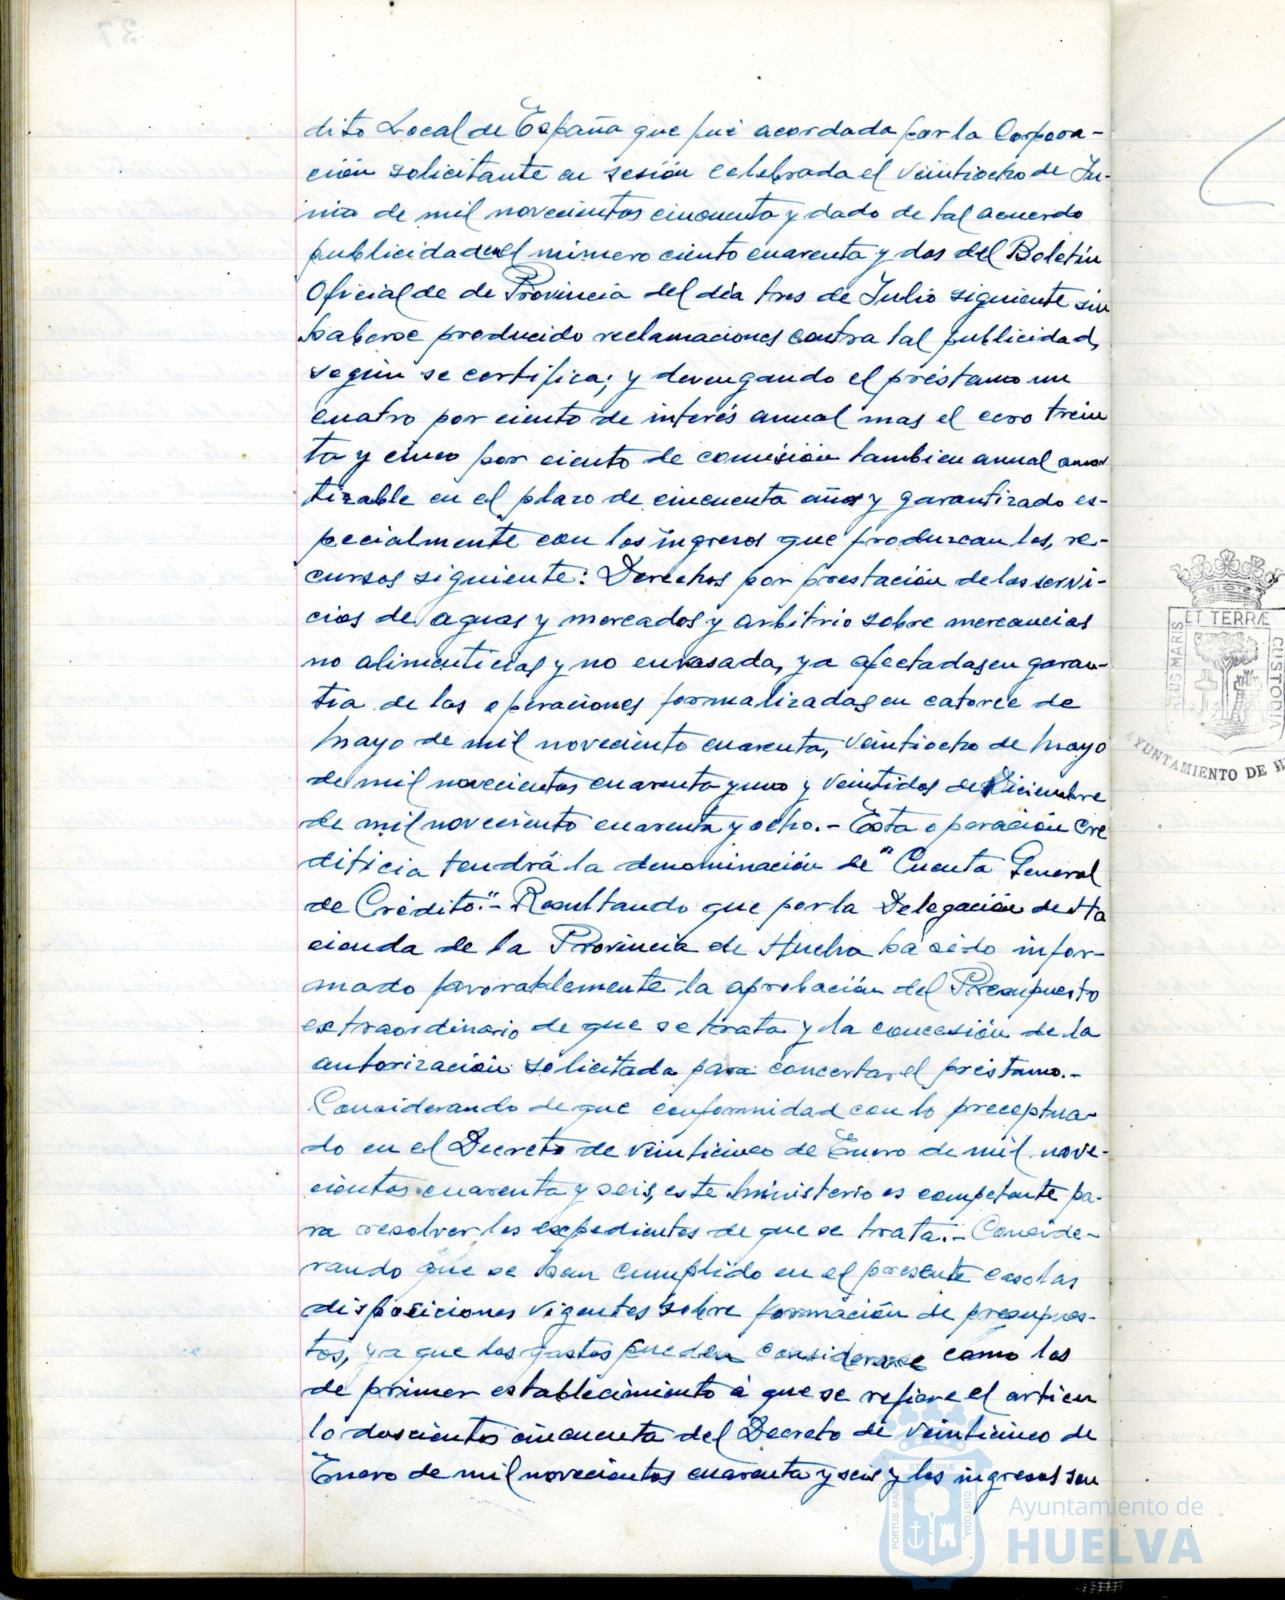 dito Local de España que fué acordada por la Corpora-
ción solicitante en sesión celebrada el veintiocho de Ju-
nio de mil novecientos cincuenta y dado de tal acuerdo
publicidad en el número ciento cuarenta y dos del Boletín
Oficial de de Provincia del día tres de Julio siguiente sin
haberse producido reclamaciones contra tal publicidad,
según se certifica; y devengando el préstamo un
cuatro por ciento de interés anual mas el cero trein
ta y cinco por ciento de comisión tambien anual amor
tizable en el plazo de cincuenta años y garantizado es-
pecialmente con los ingresos que produzcan los, re-
cursos siguiente: Derechos por prestación de los servi-
cios de aguas y mercados y arbitrio sobre mercancias
no alimenticias y no envasada, ya afectadas en garan-
tia de las operaciones formalizadas en catorce de
Mayo de mil noveciento cuarenta, veintiocho de Mayo
de mil novecientos cuarenta y uno y veintidos de Diciembre
de mil noveciento cuarenta y ocho.- Esta operación cre
diticia tendrá la denominación de "Cuenta General
de Crédito".- Resultando que por la Delegación de Ha
cienda de la Provincia de Huelva ha sido infor-
mado favorablemente la aprobación del Presupuesto
extraordinario de que se trata y la concesión de la
autorización solicitada para concertar el préstamo.-
Considerando de que conformidad con lo preceptua-
do en el Decreto de veinticinco de Enero de mil nove-
cientos cuarenta y seis, este Ministerio es competente pa-
ra resolver los expedientes de que se trata.- Conside-
rando que se han cumplido en el presente caso las
disposiciones vigentes sobre formación de presupues-
tos, ya que los gastos pueden considerarse como los
de primer establecimiento á que se refiere el articu
lo doscientos cincuenta del Decreto de veinticinco de
Enero de mil novecientos cuarenta y seis y los ingresos son
ET TERRÆ
CUSTODIA
AYUNTAMIENTO DE H
PORTUS MARIS
ET TERRÆ
CUSTODIA
Ayuntamiento de
HUELVA